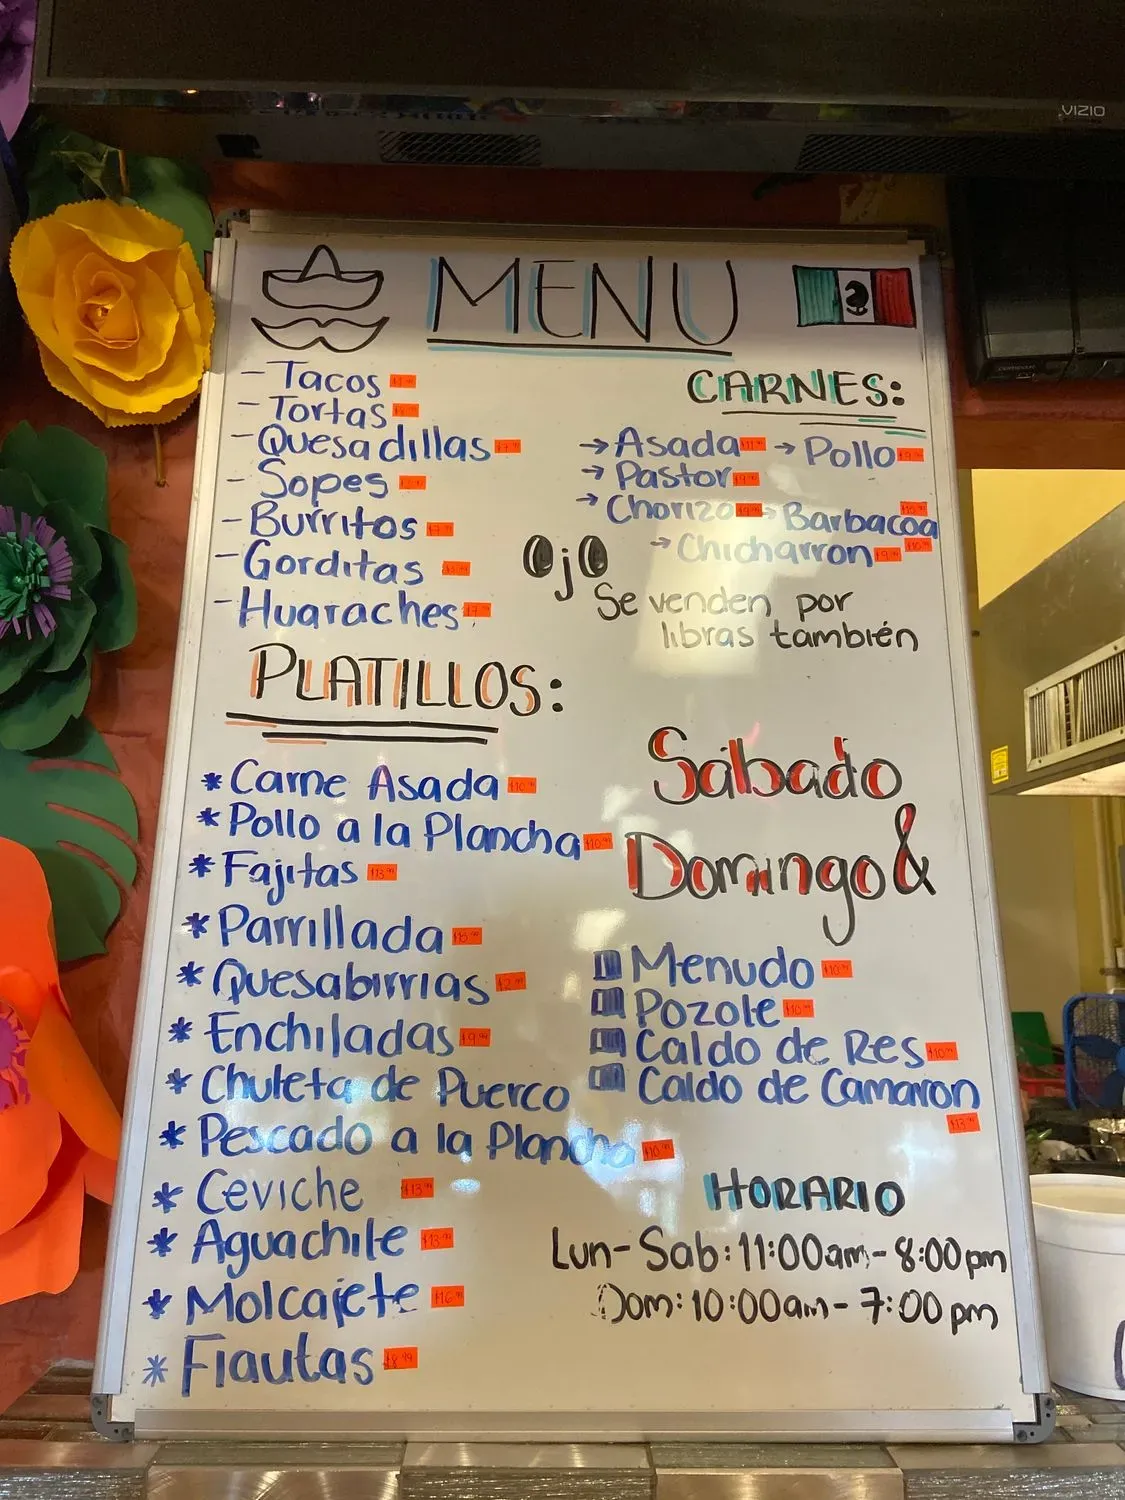 VIZIO
MENU
- Tacos
- Tortas
- Quesadillas
- Sopes
- Burritos
- Gorditas
- Huaraches
CARNES:
→ Asada → Pollo
→ Pastor
→ Chorizo → Barbacoa
→ Chicharron
OjO
Se venden por
libras también
PLATILLOS:
* Carne Asada $10.99
* Pollo a la Plancha $10.99
* Fajitas $13.99
* Parrillada
* Quesabirrias $2.99
* Enchiladas $9.99
* Chuleta de Puerco
* Pescado a la Plancha $10.99
* Ceviche $13.99
* Aguachile $13.99
* Molcajete $16.99
* Flautas $8.99
Sábado
& Domingo
Menudo $10.99
Pozole $10.99
Caldo de Res $10.99
Caldo de Camaron
$13.99
HORARIO
Lun-Sab: 11:00am-8:00pm
Dom: 10:00am-7:00pm